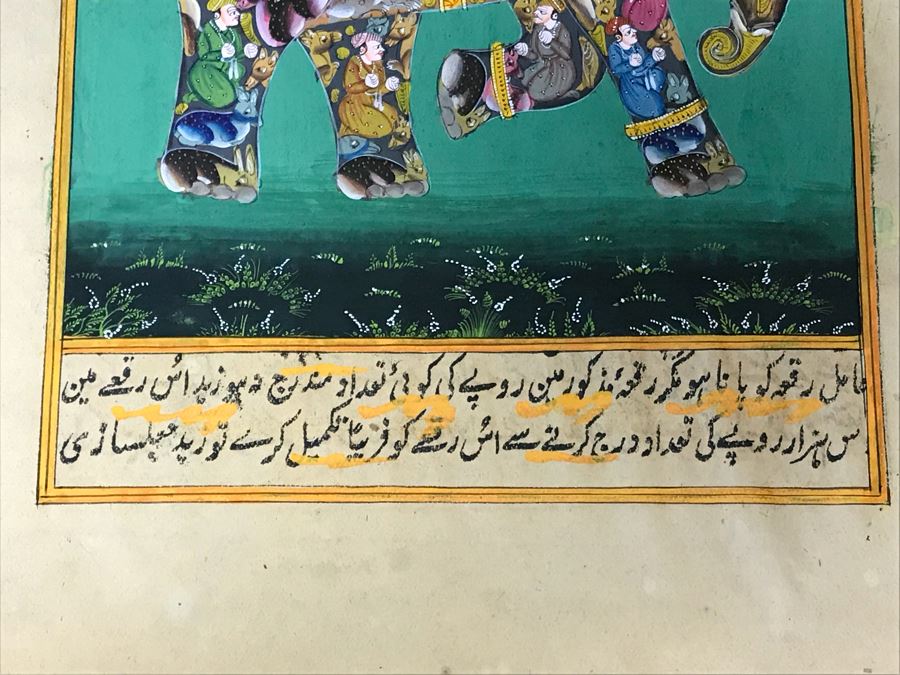 حامل رقعہ کو پانا ہو مگر رقعہ مذکور مین روپے کی کوئی تعداد مندرج نہو زید اس رقعے مین
دس ہزار روپے کی تعداد درج کرنے سے اس رقعے کو فریبًا تکمیل کرے تو زید جعلسازی